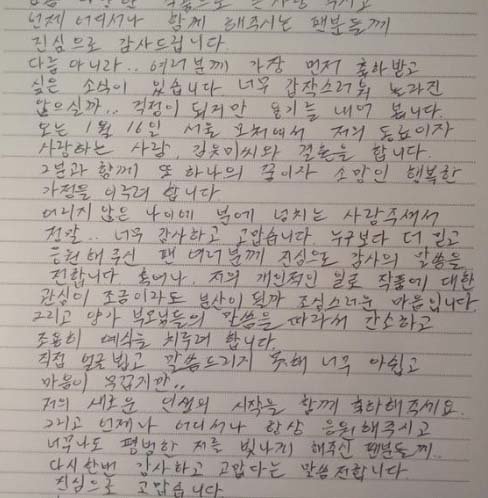 언제 어디서나 함께 해주시는 팬분들께
진심으로 감사드립니다.
다름 아니라.. 여러분께 가장 먼저 축하받고
싶은 소식이 있습니다. 너무 갑작스러워 놀라진
않으실까.. 걱정이 되지만 용기를 내어 봅니다.
오는 1월 16일 서울 모처에서 저의 동료이자
사랑하는 사람, 김윳미씨와 결혼을 합니다.
그분과 함께 또 하나의 꿈이자 소망인 행복한
가정을 이루려 합니다.
어리지 않은 나이에 분에 넘치는 사랑주셔서
정말.. 너무 감사하고 고맙습니다. 누구보다 더 믿고
응원해 주신 팬 여러분께 진심으로 감사의 말씀을
전합니다. 혹여나, 저의 개인적인 일로 작품에 대한
관심이 조금이라도 분산이 될까 조심스러운 마음입니다.
그리고 양가 부모님들의 말씀을 따라서 간소하고
조용히 예식을 치루려 합니다.
직접 얼굴 뵙고 말씀드리지 못해 너무 아쉽고
마음이 무겁지만..
저의 새로운 인생의 시작을 함께 축하해주세요.
그리고 언제나 어디서나 항상 응원해주시고
너무나도 평범한 저를 빛나게 해주신 팬분들께..
다시한번 감사하고 고맙다는 말씀 전합니다.
진심으로 고맙습니다